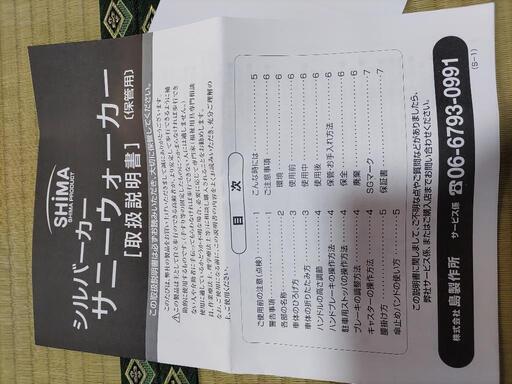 SHIMA
SHIMA PRODUCT
シルバーカー
サニーウォーカー
[取扱説明書]
(保管用)
この取扱説明書は必ずお読みいただき、大切に保管してください。
このたびは、弊社の製品をお買い上げいただきまして誠にありがとうございます。
目次
ご使用前の注意(点検) 1
警告事項 1
各部の名称 2
車体のひろげ方 3
車体の折りたたみ方 3
ハンドルの高さ調節 4
ハンドブレーキの操作方法 4
駐車用ストッパの操作方法 4
ブレーキの調整方法 4
キャスターの操作方法 4
腰掛け方 5
傘止めバンドの使い方 5
こんな時には 5
ご注意事項 6
環境 6
使用前 6
使用中 6
使用後 6
保管・お手入れ方法 6
保全 6
廃棄 6
SGマーク 7
保証書 7
この説明書に関しまして、ご不明な点やご質問などがありましたら、
弊社サービス係、またはご購入店までお問い合わせください。
株式会社 島製作所 サービス係 ☎06-6793-0991
(S-1)